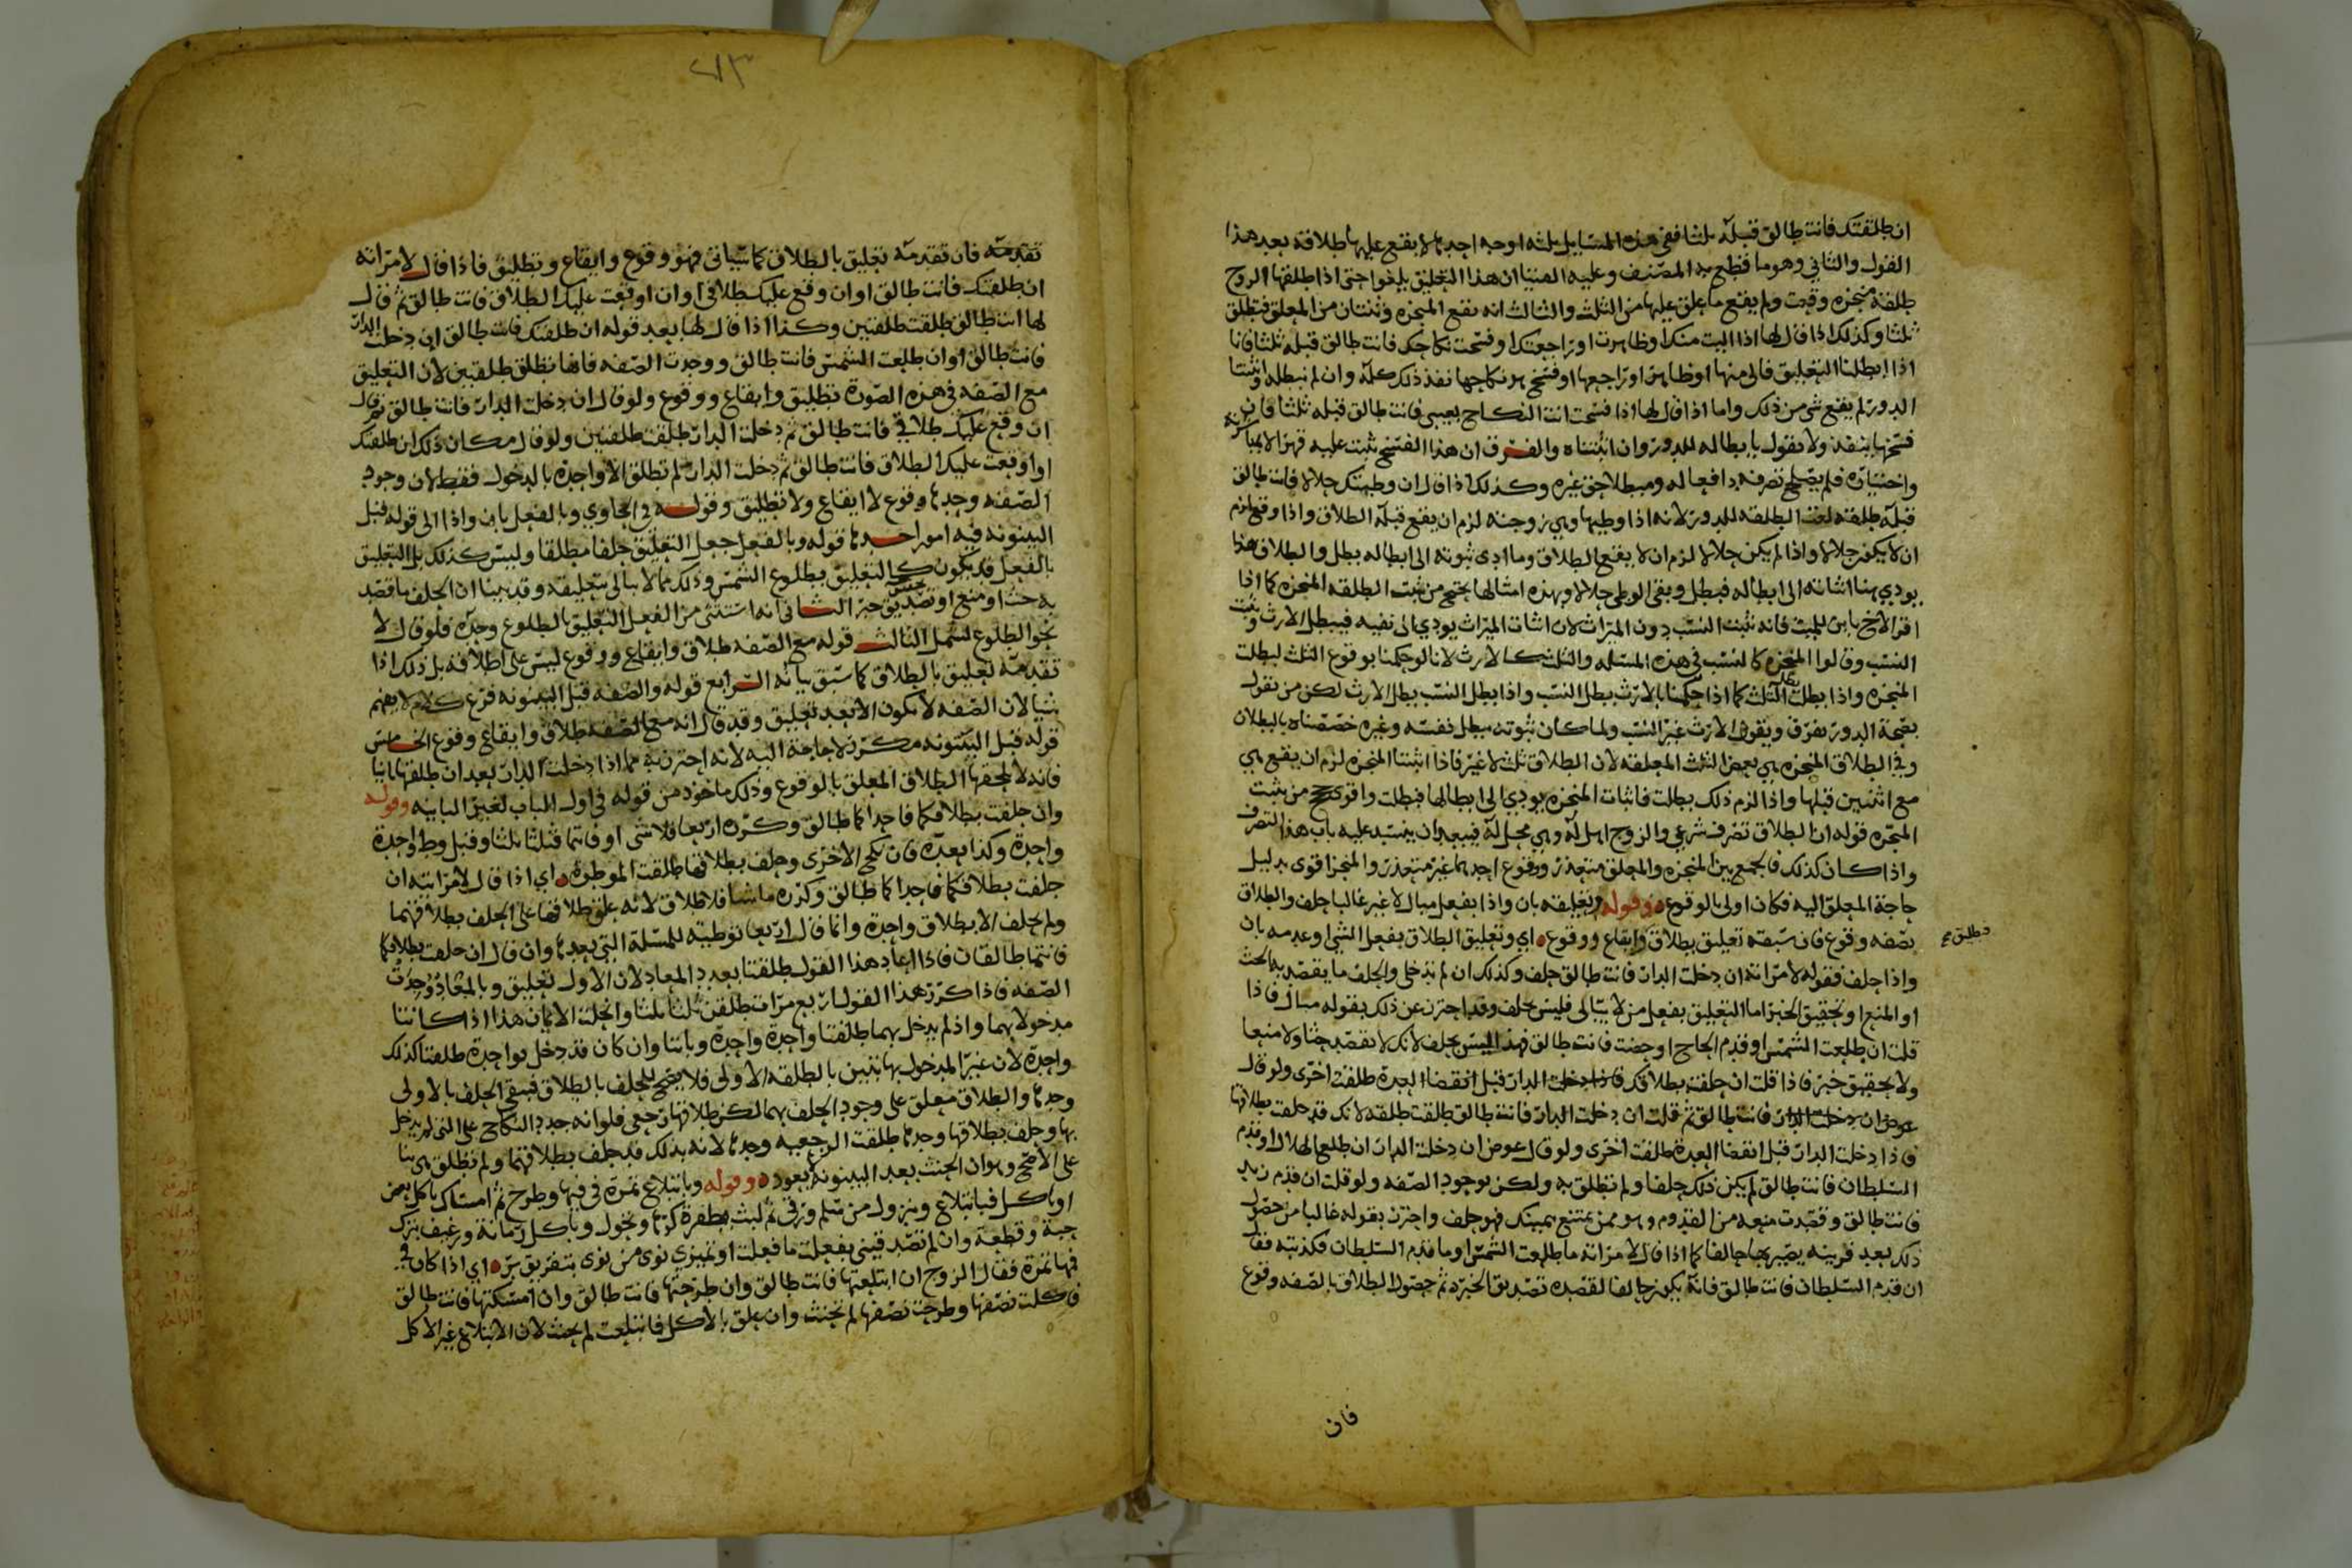 ان طلقتك فانت طالق قبله ثلثا ففي هذه المسايل ثلثه اوجه احدها لا يقع عليها طلاقه بعد هذا
القول والثاني وهو ما قطع به المصنف وعليه الفتيا ان هذا التعليق يلغوا حتى اذا طلقها الزوج
طلقة منجزه وقعت ولم يقع ما علق عليها من الثلث والثالث انه يقع المنجزه وثنتان من المعلق فتطلق
ثلثا وكذلك اذا قال لها اذا اليت منك او ظاهرت او راجعتك او فسخت نكاحك فانت طالق قبله ثلثا فانا
اذا ابطلنا التعليق فالى منها او ظاهر او راجعها او فسخ هو نكاحها نفذ ذلك كله وان لم نبطله واثبتنا
الدور لم يقع شي من ذلك واما اذا قال لها اذا فسخت انت النكاح بعيبي فانت طالق قبله ثلثا فان
فسخها ينفذ ولا نقول بابطاله للدور وان اثبتناه والفرق ان هذا الفسخ يثبت عليه قهرا لا بمباشرته
واختياره فلم يصلح تصرفه دافعا له ومبطلا حق غيره وكذلك اذا قال ان وطيتك حلالا فانت طالق
قبله طلقه لغت الطلقه للدور لانه اذا وطيها وهي زوجته لزم ان يقع قبله الطلاق واذا وقع لزم
ان لا يكون حلالا واذا لم يكن حلالا لزم ان لا يقع الطلاق وما ادى ثبوته الى ابطاله بطل والطلاق هذا
يودي هنا اثباته الى ابطاله فبطل وبقى الوطي حلالا وبهذه امثالها يحتج من يثبت الطلقه المنجزه كما اذا
اقر الاخ بابن للميت فانه يثبت النسب دون الميراث لان اثبات الميراث يودي الى نفيه فيبطل الارث ويثبت
النسب وقالوا المنجزه كالنسب في هذه المسله والثلث كالارث لانا لو حكمنا بوقوع الثلث لبطلت
المنجزه واذا بطلت بطل الثلث كما اذا حكمنا بالارث بطل النسب واذا بطل النسب بطل الارث لكن من يقول
بصحة الدور يفرق ويقول الارث غير النسب ولما كان ثبوته يبطل نفسه وغيره خصصناه بالبطلان
وفي الطلاق المنجزه هي بعض الثلث المعلقه لان الطلاق ثلث لا غير فاذا اثبتنا المنجزه لزم ان يقع هي
مع اثنتين قبلها واذا لزم ذلك بطلت فاثبات المنجزه يودي الى ابطالها فبطلت واقوى حجج من يثبت
المنجزه قوله ان الطلاق تصرف شرعي والزوج اهل له وهي محل له فيبعد ان ينسد عليه باب هذا التصرف
واذا كان كذلك فالجمع بين المنجزه والمعلق متعذر ووقوع احدهما غير متعذر والمنجز اقوى بدليل
حاجة المعلق اليه فكان اولى بالوقوع ه وقوله وتعليقه بان واذا بفعل مبال لا غير غالبا حلف والطلاق
بصفه وقوع فان سبقه تعليق بطلاق وايقاع ووقوع ه اي وتعليق الطلاق بفعل الشي او عدمه بان
فطلق
واذا حلف فقوله لامراته ان دخلت الدار فانت طالق حلف وكذلك ان لم تدخلي والحلف ما يقصد به الحث
او المنع او تحقيق الخبر اما التعليق بفعل من لا يبالي فليس بحلف وقد احترز عن ذلك بقوله مبال فاذا
قلت ان طلعت الشمس او قدم الحاج او حضت فانت طالق فهذا ليس بحلف لانك لا تقصد حثا ولا منعا
ولا تحقيق خبر فاذا قلت ان حلفت بطلاقك فاذا دخلت الدار قبل انقضا العدة طلقت اخرى ولو قال
عوض ان دخلت الدار فانت طالق ثم قلت ان دخلت الدار فانت طالق طلقت طلقه لانك قد حلفت بطلاقها
فاذا دخلت الدار قبل انقضا العدة طلقت اخرى ولو قال عوض ان دخلت الدار ان طلع الهلال او قدم
السلطان فانت طالق لم يكن ذلك حلفا ولم تطلق به ولكن بوجود الصفه ولو قلت ان قدم زيد
فانت طالق وقصدت منعه من القدوم وهو ممن يمتنع بيمينك فهو حلف واحترز بقوله غالبا من حصول
ذلك بعد قرينه يصير بها حالفا كما اذا قال لامراته ما طلعت الشمس او ما قدم السلطان فكذبته فقال
ان قدم السلطان فانت طالق فانه يكون حالفا لقصده تصديق الخبر ثم حصول الطلاق بالصفه وقوع
فان
٦٣
تقدمته فان تقدمته تعليق بالطلاق كما سياتي فهو وقوع وايقاع وتطليق فاذا قال لامراته
ان طلقتك فانت طالق او ان وقع عليك طلاقي او ان اوقعت عليك الطلاق فانت طالق ثم قال
لها انت طالق طلقت طلقتين وكذا اذا قال لها بعد قوله ان طلقتك فانت طالق ان دخلت الدار
فانت طالق او ان طلعت الشمس فانت طالق ووجدت الصفه فانها تطلق طلقتين لان التعليق
مع الصفه في هذه الصورة تطليق وايقاع ووقوع ولو قال ان دخلت الدار فانت طالق ثم قال
ان وقع عليك طلاقي فانت طالق ثم دخلت الدار طلقت طلقتين ولو قال مكان ذلك ان طلقتك
او اوقعت عليك الطلاق فانت طالق ثم دخلت الدار لم تطلق الا واحدة بالدخول فقط لان وجود
الصفه وحدها وقوع لا ايقاع ولا تطليق وقوله في الحاوي وبالفعل بان واذا الى قوله قبل
البينونه فيه امور احدها قوله وبالفعل جعل التعليق حلفا مطلقا وليس كذلك بل التعليق
بالفعل قد يكون كالتعليق بطلوع الشمس وذلك مما لا يبالى بتعليقه وقد بينا ان الحلف ما قصد
به حث او منع او تصديق خبر الثاني انه استثنى من الفعل التعليق بالطلوع وحده فلو قال لا
نحو الطلوع لشمل الثالث قوله مع الصفه طلاق وايقاع ووقوع ليس على اطلاقه بل ذلك اذا
تقدمه تعليق بالطلاق كما سبق بيانه الرابع قوله والصفه قبل البينونه فرع كلام لا يفهم
شيا لان الصفه لا تكون الا بعد تعليق وقد قال انه مع الصفه طلاق وايقاع وقوع الخامس
قوله قبل البينونه مكرر لا حاجة اليه لانه احترز به مما اذا دخلت الدار بعد ان طلقها باينا
فانه لا يلحقها الطلاق المعلق بالوقوع وذلك ماخوذ من قوله في اول الباب لغير الباينه وقوله
وان حلفت بطلاقكما فاحداكما طالق وكرره اربعا فلا شي او فانتما فثلثا ثلثا وقبل وطء واحدة
واحدة وكذا بعده فان نكح الاخرى وحلف بطلاقها طلقت الموطوءه ه اي اذا قال لامراتيه ان
حلفت بطلاقكما فاحداكما طالق وكرره ما شا فلا طلاق لانه علق طلاقها على الحلف بطلاقهما
ولم يحلف الا بطلاق واحدة وانما قال اربعا توطيه للمسله التي بعدها وان قال ان حلفت بطلاقكما
فانتما طالقان فاذا اعاد هذا القول طلقتا بعدد المعاد لان الاول تعليق وبالمعاد وجدت
الصفه فاذا كرر هذا القول اربع مرات طلقتا ثلثا ثلثا وانحلت الايمان هذا اذا كانتا
مدخولا بهما واذ لم يدخل بهما طلقتا واحدة واحدة وبانتا وان كان قد دخل بواحدة طلقتا كذلك
واحدة لان غير المدخول بها تبين بالطلقه الاولى فلا يصح للحلف بالطلاق فبقي الحلف بالاولى
وحدها والطلاق معلق على وجود الحلف بهما لكن طلاقها رجعي فلو انه جدد النكاح على التي لم يدخل
بها وحلف بطلاقها وحدها طلقت الرجعيه وحدها لانه بذلك قد حلف بطلاقهما ولم تطلق هي بنا
على الاصح وهو ان الحنث بعد البينونه لا يعود ه وقوله وبابتلاع تمرة في فيها وطرح ثم امساك باكل بعض
او باكل فبابتلاع وبنزول من سلم ورقي ثم لبث بطفرة كوثبا وتحول وباكل رمانة ورغيف بترك
حبة وقطعة وان لم تصدقيني بفعلت ما فعلت او تميزي نوى من نوى بتفريق بر ه اي اذا كان في
فيها تمرة فقال الزوج ان ابتلعتها فانت طالق وان طرحتها فانت طالق وان امسكتها فانت طالق
فاكلت نصفها وطرحت نصفها لم تحنث وان علق بالاكل فابتلعت لم يحنث لان الابتلاع غير الاكل